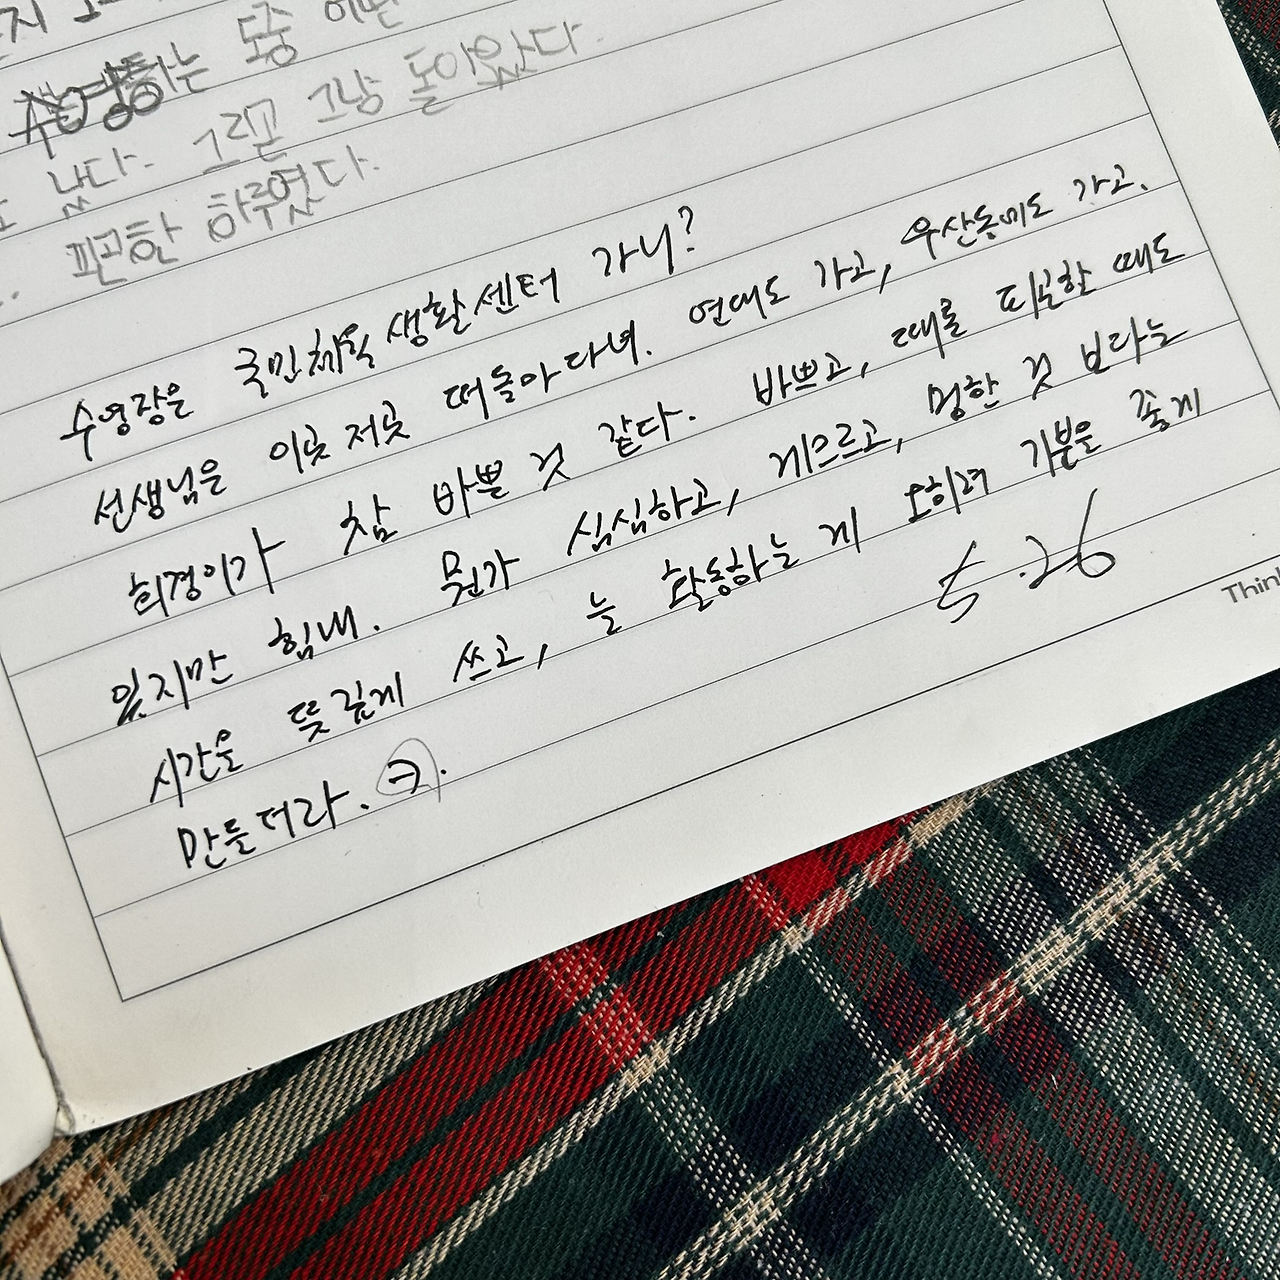 수영하는 도중 어떤
났다. 그리곤 그냥 돌아왔다.
피곤한 하루였다.
수영장은 국민체육생활센터 가니?
선생님은 이곳 저곳 떠돌아다녀. 연대도 가고, 우산동에도 가고.
희경이가 참 바쁠 것 같다. 바쁘고, 때론 피곤할 때도
있지만 힘내. 뭔가 심심하고, 게으르고, 멍한 것 보다는
시간을 뜻깊게 쓰고, 늘 활동하는 게 오히려 기분을 좋게
만들더라.
5.26
Thin